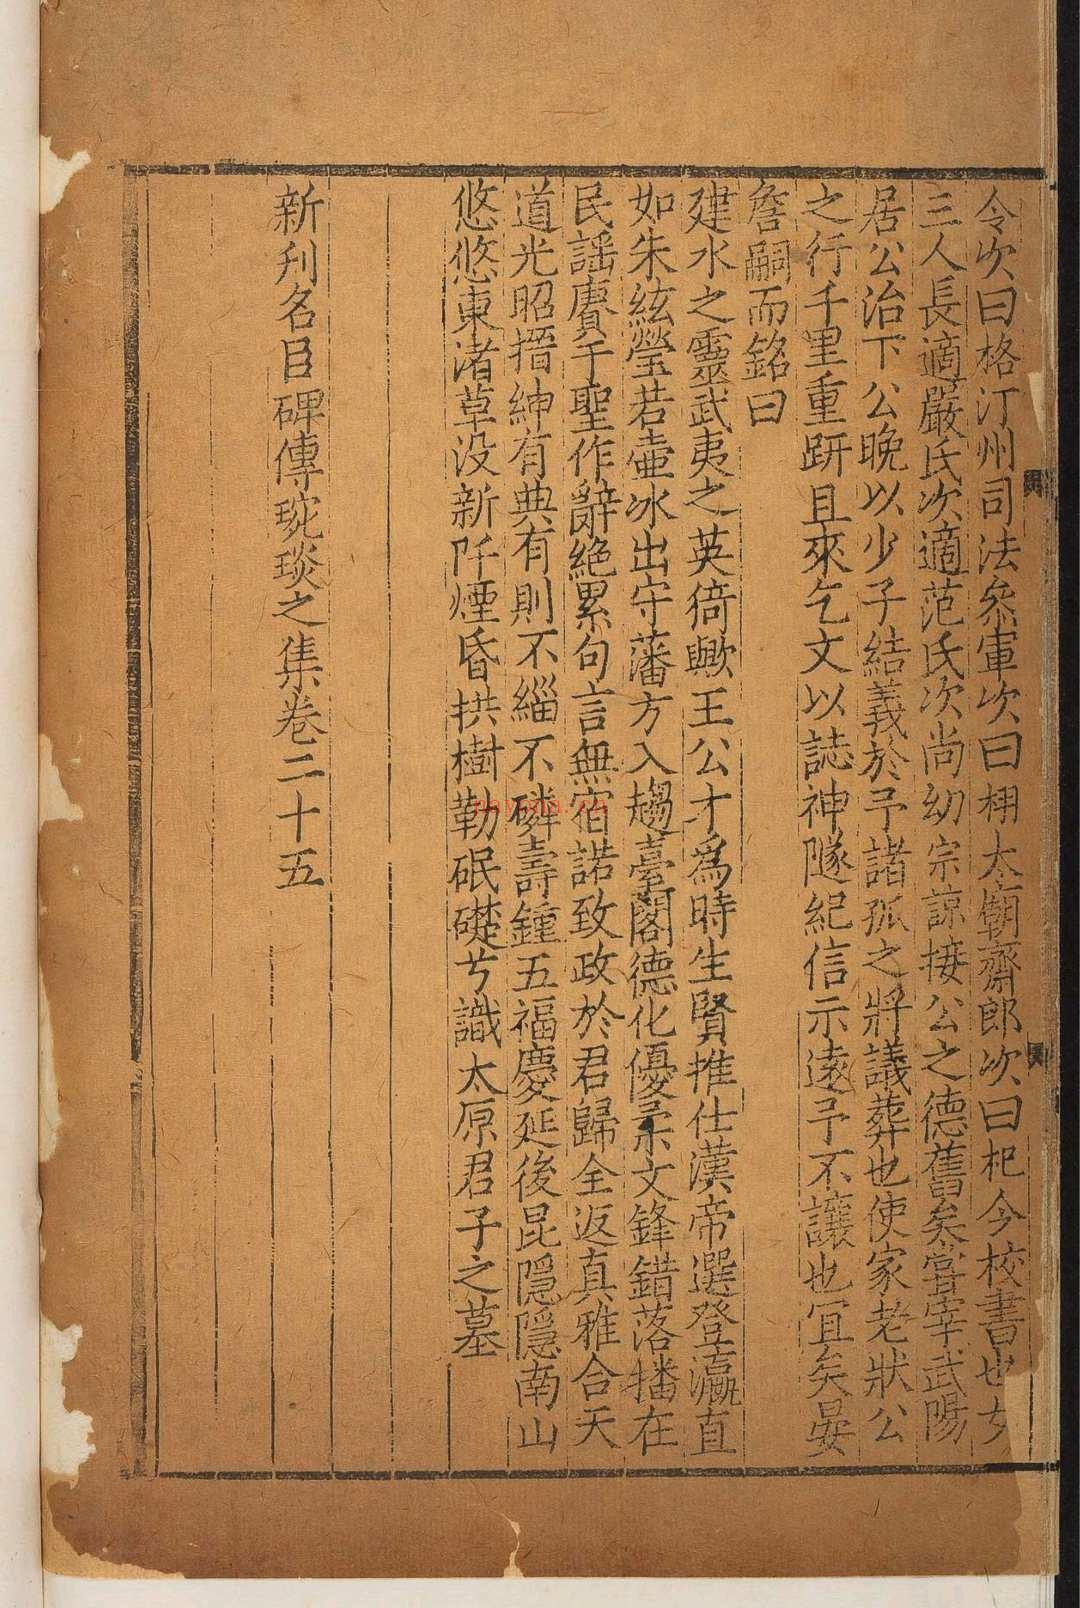 令次曰格汀州司法叅軍次曰栩太廟齋郎次曰杞今校書也女
三人長適嚴氏次適范氏次尚幼宗諒接公之德舊矣嘗宰武陽
居公治下公晩以少子結義於予諸孤之將議葬也使家老狀公
之行千里重趼且來乞文以誌神隧紀信示遠予不讓也宜矣晏
詹嗣而銘曰
建水之靈武夷之英猗歟王公才爲時生賢推仕漢帝選登瀛直
如朱絃瑩若壷冰出守藩方入趨臺閣德化優柔文鋒錯落播在
民謡賡于聖作辭絶累句言無宿諾致政於君歸全返真雅合天
道光昭搢紳有典有則不緇不磷壽鍾五福慶延後昆隱隱南山
悠悠東渚草没新阡煙昏拱樹勒珉礎兮識太原君子之墓
新刋名臣碑傳琬琰之集卷二十五